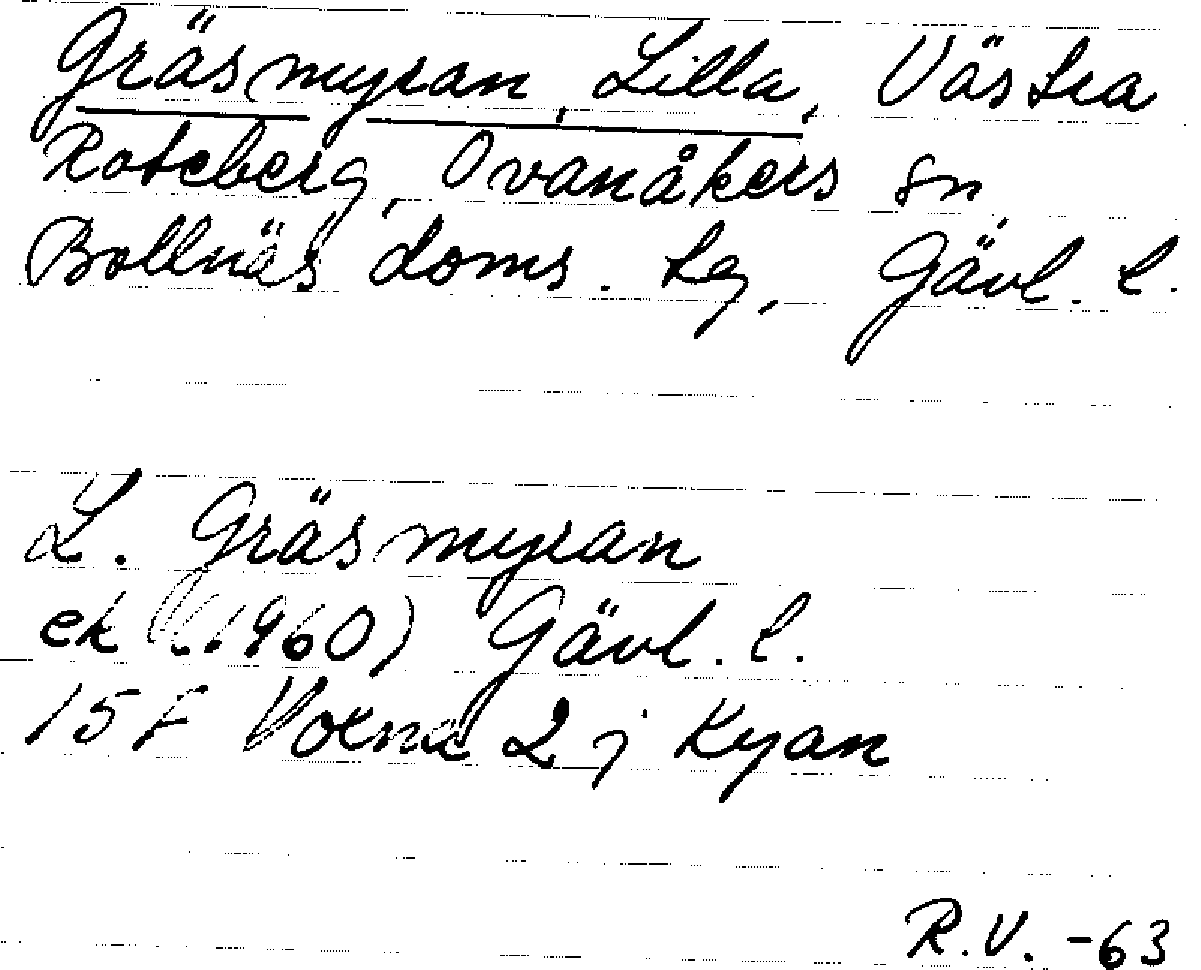 Gräsmyran, Lilla, Västra
Roteberg, Ovanåkers sn,
Bollnäs doms. tg, Gävl. l.
L. Gräsmyran
ek (1960) Gävl. l.
15F Voxna 2j Kyan
R.V. -63